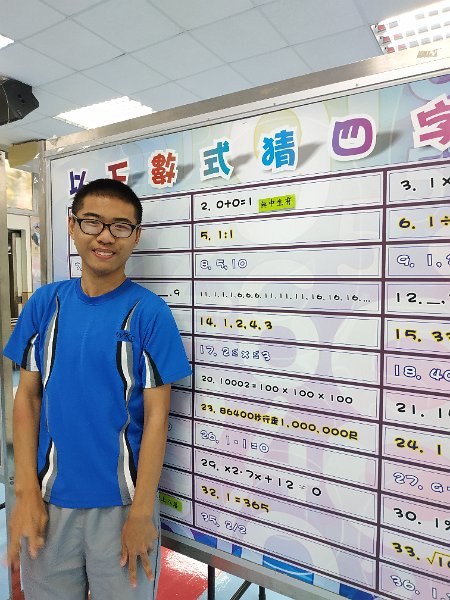 以下數式猜四字
2. 0+0=1 無中生有
3. 1
5. 1:1
6. 1÷
8. 5, 10
9. 1,
.9
11. 1, 1, 1, 6, 6, 6, 11, 11, 11, 16, 16, 16, ...
12. _.
14. 1, 2, 4, 3
15. 33
17. 2≤x≤3
18. 40
20. 10002=100×100×100
21. 10
23. 86400秒行走1,000,000尺
24. 1
26. 1·1=0
27.
29. x2-7x+12=0
30. 1%
32. 1=365
33. √10
35. 2/2
36. 1,